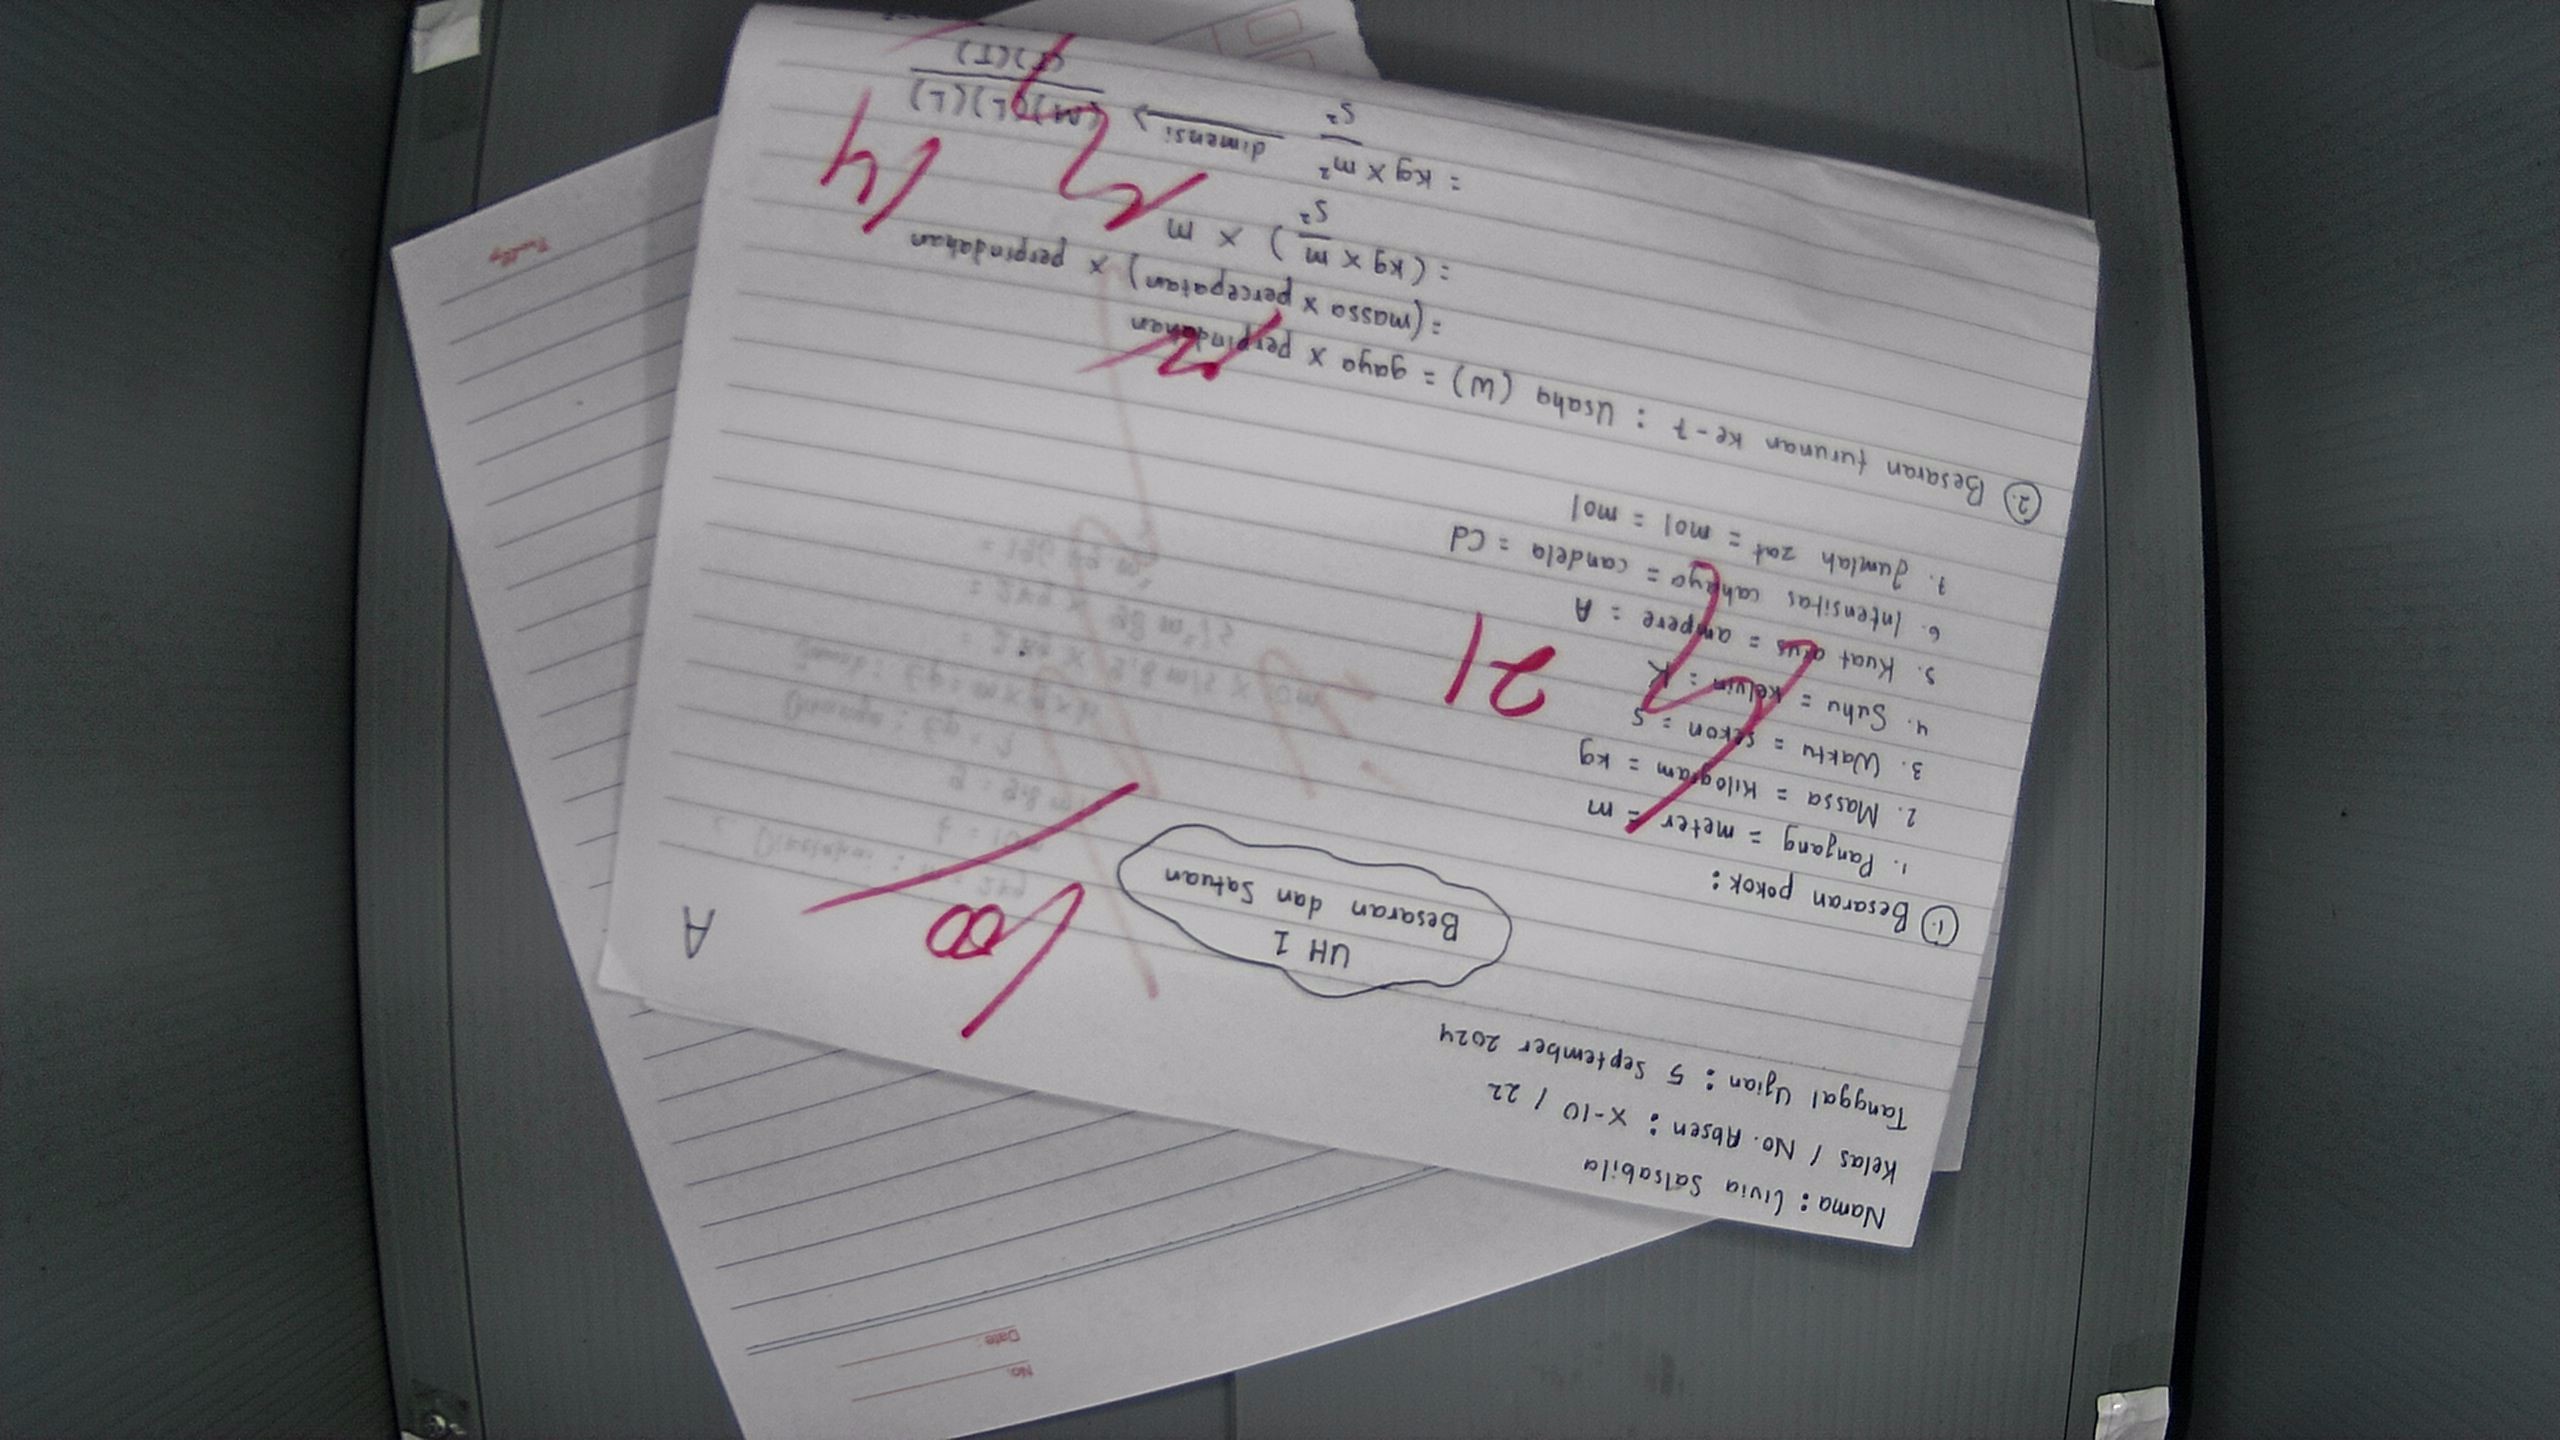 Nama : Livia Salsabila
Kelas / No. Absen : X-10 / 22
Tanggal Ujian : 5 September 2024
A
100
UH 1
Besaran dan Satuan
1. Besaran pokok :
1. Panjang = meter = m
2. Massa = kilogram = kg
3. Waktu = sekon = s
4. Suhu = kelvin = K
5. Kuat arus = ampere = A
6. Intensitas cahaya = candela = Cd
7. Jumlah zat = mol = mol
21
2. Besaran turunan ke-7 : Usaha (W) = gaya x perpindahan
= (massa x percepatan) x perpindahan
= (kg x m/s²) x m
= kg x m²/s² dimensi → (M)(L)(L)/(T)(T)
14
No.
Date: